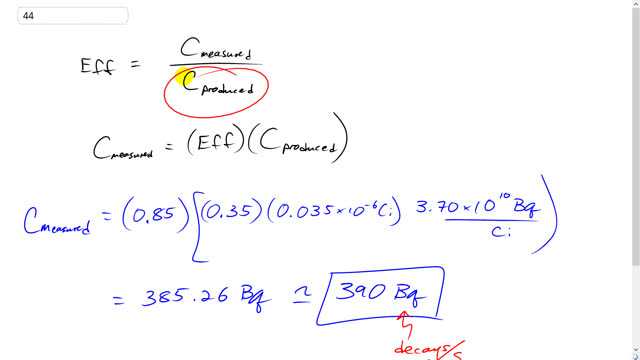 44
Eff = C measured / C produced
C measured = (Eff)(C produced)
C measured = (0.85)[(0.35)(0.035×10⁻⁶Ci) 3.70×10¹⁰ Bq / Ci)
= 385.26 Bq ≃ 390 Bq
decays/s